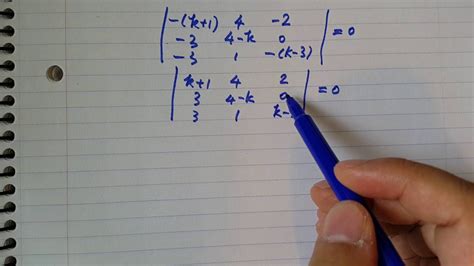 | -(k+1) 4 -2 |
| -3 4-k 0 | = 0
| -3 1 -(k-3) |
| k+1 4 2 |
| 3 4-k 0 | = 0
| 3 1 k- |